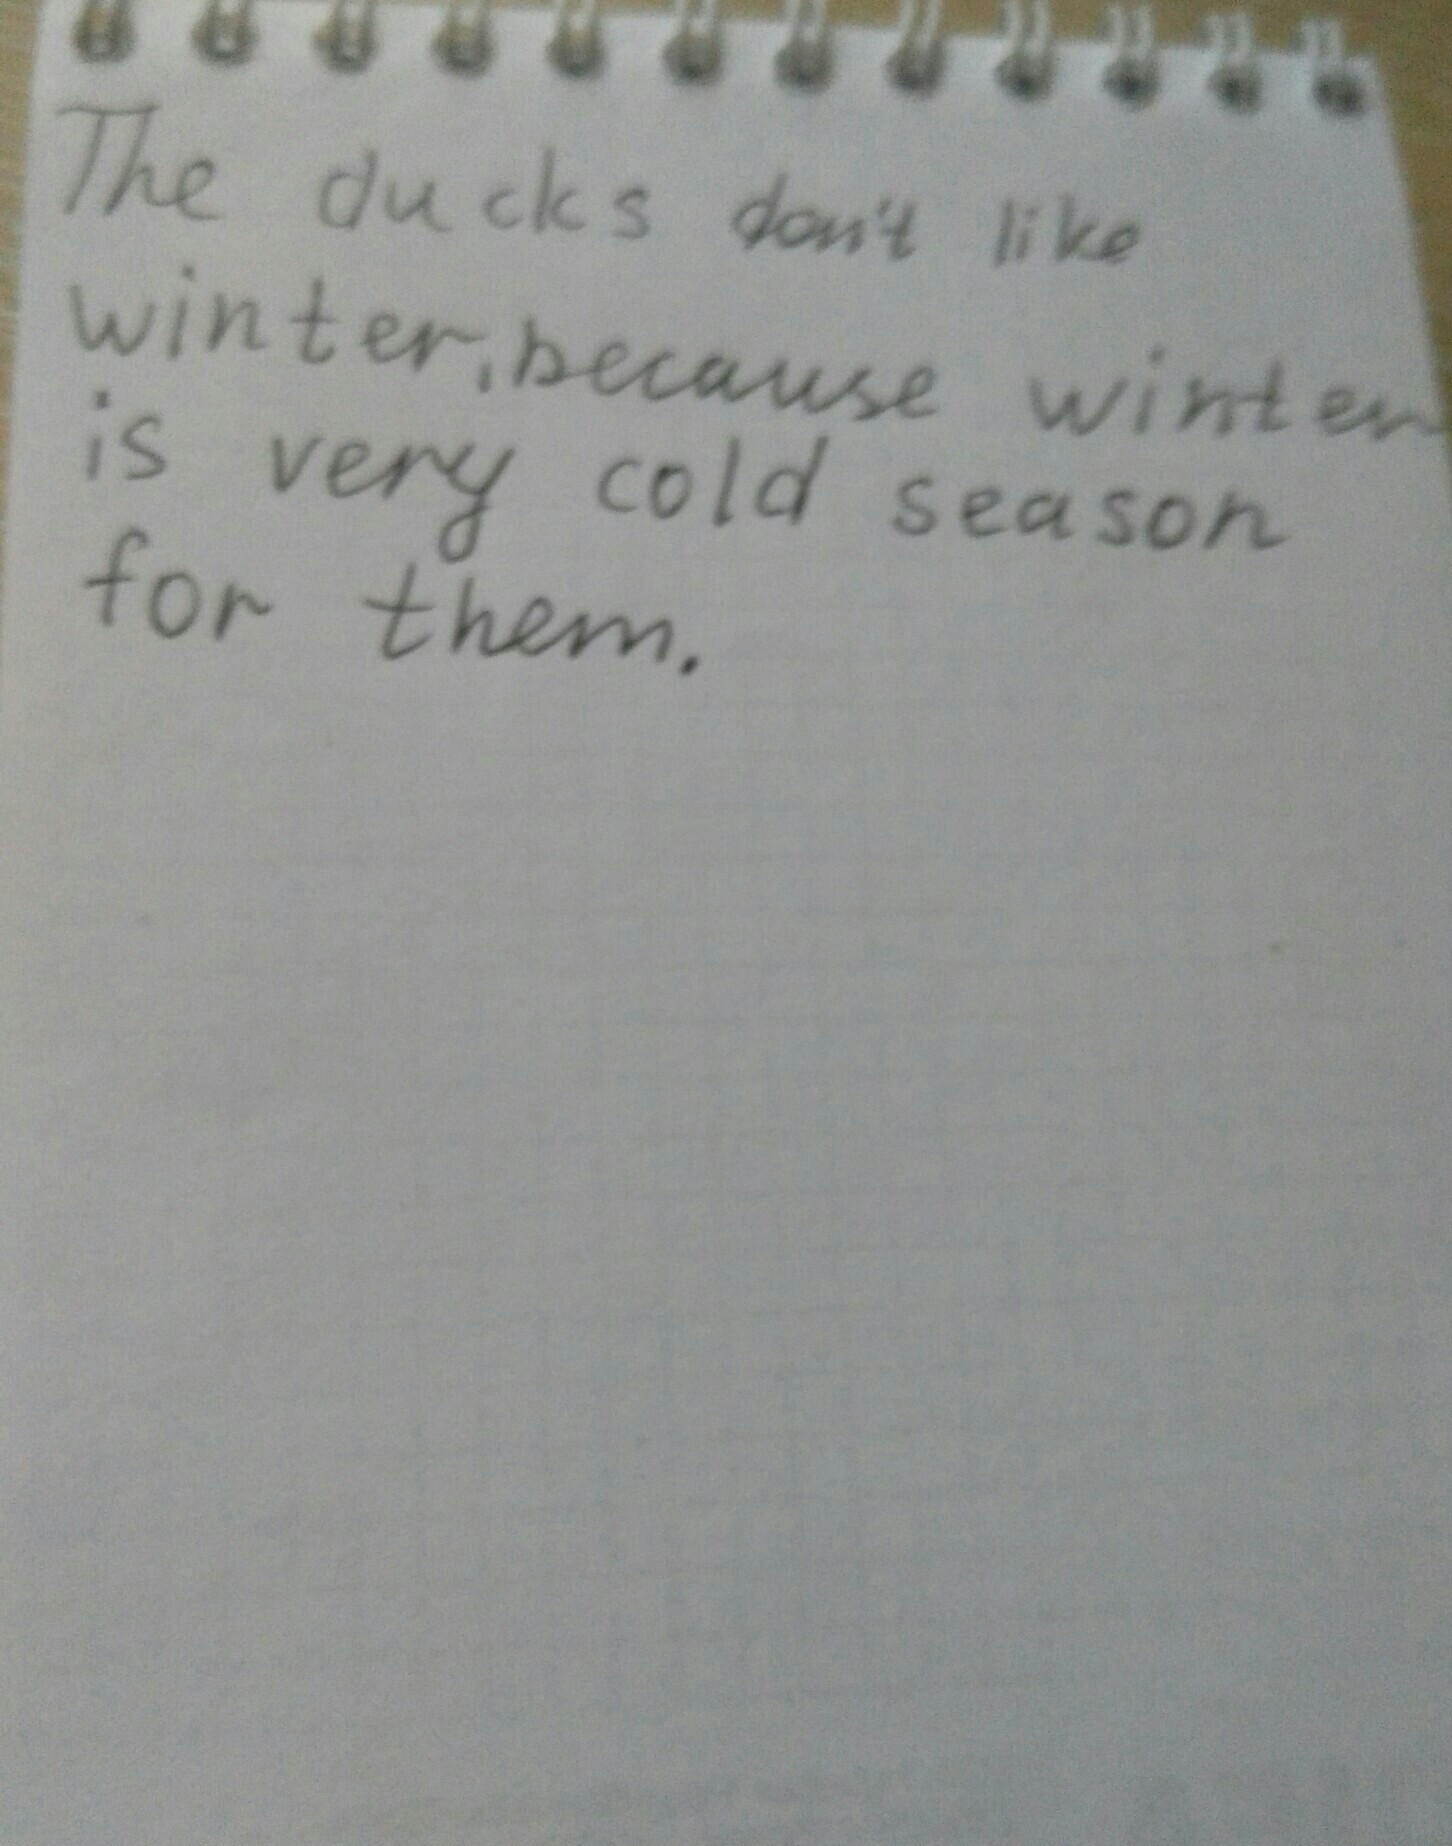 The ducks don't like
winter, because winter
is very cold season
for them.